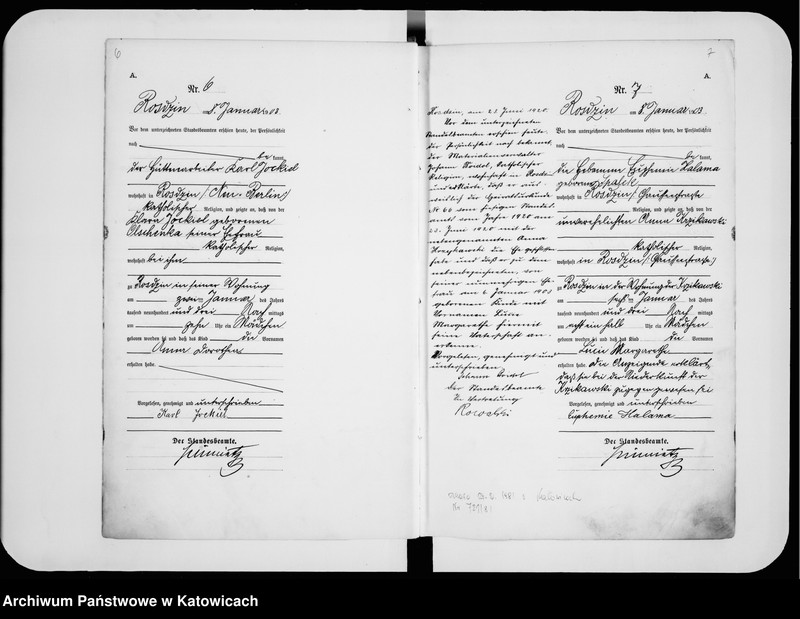 6
A.
Nr. 6
Rosdzin am 8. Januar 1903
Vor dem unterzeichneten Standesbeamten erschien heute, der Persönlichkeit
nach
be kannt,
der Hüttenarbeiter Karl Jockiel
wohnhaft in Rosdzin (Neu-Berlin)
katholischer Religion, und zeigte an, daß von der
Klara Jockiel geborenen
seiner Ehefrau
katholischer Religion,
wohnhaft bei ihm
zu Rosdzin in seiner Wohnung
am zwei Januar des Jahres
tausend neunhundert und drei Nachmittags
um zehn Uhr ein Mädchen
geboren worden sei und daß das Kind die Vornamen
Anna Dorothea
erhalten habe.
Vorgelesen, genehmigt und unterschrieben
Karl Jockiel
Der Standesbeamte.
7
A.
Nr. 7
Rosdzin am 8. Januar 1903
Vor dem unterzeichneten Standesbeamten erschien heute, der Persönlichkeit
nach
be kannt,
die Hebamme Euphemie Halama
geborene
wohnhaft in Rosdzin
Religion, und zeigte an, daß von der
unverehelichten Anna Kzikawski
katholischer Religion,
wohnhaft in Rosdzin
zu Rosdzin in der Wohnung der Kzikawski
am sechs Januar des Jahres
tausend neunhundert und drei Nachmittags
um acht ein halb Uhr ein Mädchen
geboren worden sei und daß das Kind die Vornamen
Lucie Margarethe
erhalten habe. Die Anzeigende erklärt,
daß sie bei der Niederkunft der
Kzikawski zugegen gewesen sei
Vorgelesen, genehmigt und unterschrieben
Euphemie Halama
Der Standesbeamte.
am 23. Juni 1920.
Vor dem unterzeichneten
Standesbeamten erschien heute
der Persönlichkeit nach bekannt,
der Materialienverwalter
Johann katholischer
Religion, wohnhaft in
und erklärte, daß er
der Heiratsurkunde
No 60 vom hiesigen Standes-
amt vom Jahre 1920 am
22. Juni 1920 mit der
nebengenannten Anna
die Ehe geschlossen
habe und daß er zu dem
nebenbezeichneten, von
seiner nunmehrigen Ehe-
frau am 6. Januar 1903
geborenen Kinde mit
Vornamen Lucie
Margarethe hiermit
seine Vaterschaft an-
erkenne.
Vorgelesen, genehmigt und
unterschrieben
Johann
Der Standesbeamte
In Vertretung
Archiwum Państwowe w Katowicach